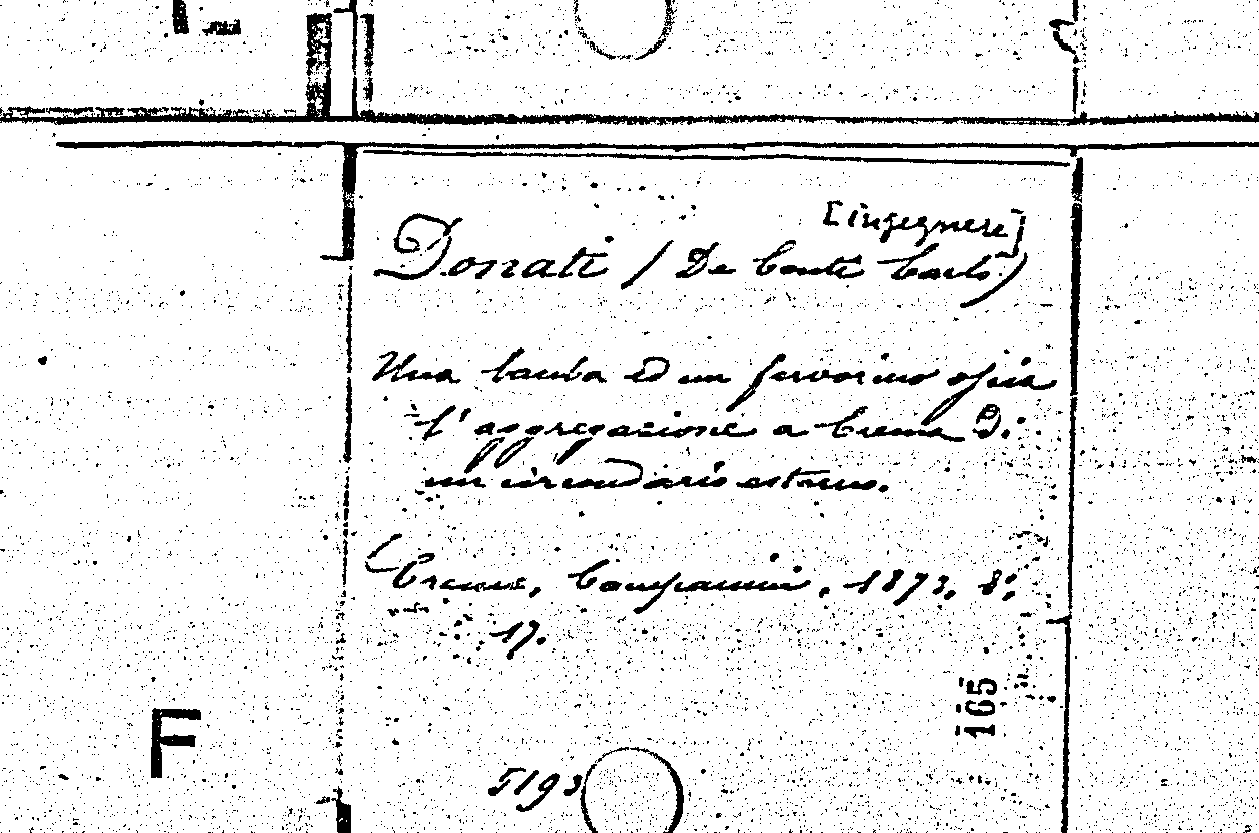 [ingegnere]
Donati (De Conti Carlo)
Una bamba ed un fervorino ossia
l'aggregazione a Crema di
un circondario esterno.
(Crema, Campanini, 1873, 8º,
17.
165
F
5193